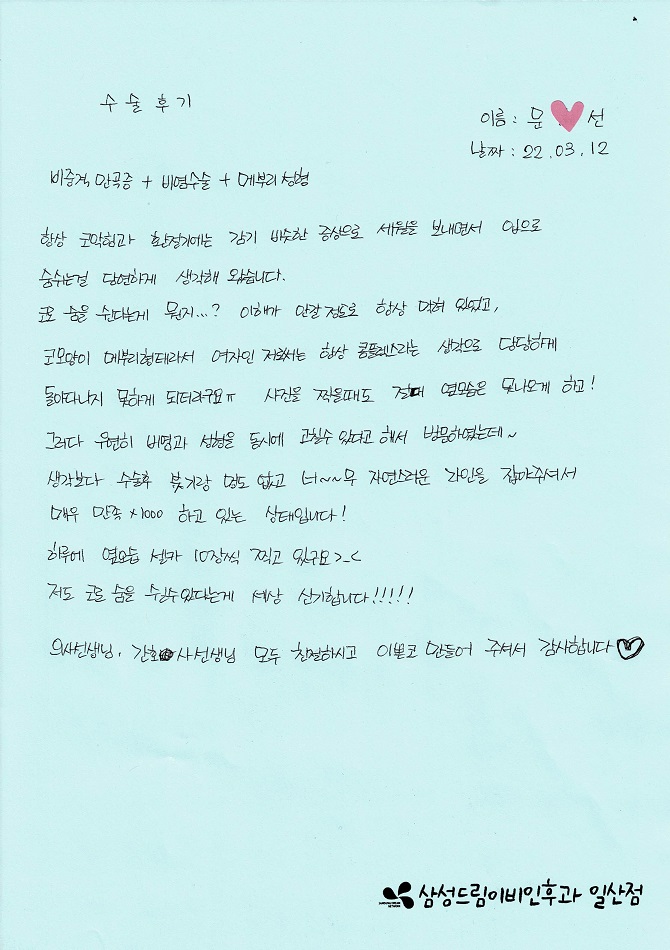 수술후기
이름 : 문 선
날짜 : 22.03.12
비중격 만곡증 + 비염수술 + 메부리 성형
항상 코막힘과 환절기에는 감기 비슷한 증상으로 세월을 보내면서 입으로
숨쉬는걸 당연하게 생각해 왔습니다.
코로 숨을 쉰다는게 뭔지...? 이해가 안갈 정도로 항상 막혀 있었고,
코모양이 메부리형태라서 여자인 저로써는 항상 콤플렌스라는 생각으로 당당하게
돌아다니지 못하게 되더라구요ㅠ 사진을 찍을때도 절대 옆모습은 못나오게 하고!
그러다 우연히 비염과 성형을 동시에 고칠수 있다고 해서 방문하였는데~
생각보다 수술후 붓기랑 멍도 없고 너~~무 자연스러운 라인을 잡아주셔서
매우 만족 x1000 하고 있는 상태입니다!
하루에 옆모습 셀카 10장씩 찍고 있구요 >_<
저도 코로 숨을 쉴수있다는게 세상 신기합니다!!!!!
의사선생님, 간호사선생님 모두 친절하시고 이쁜코 만들어 주셔서 감사합니다♡
삼성드림이비인후과 일산점